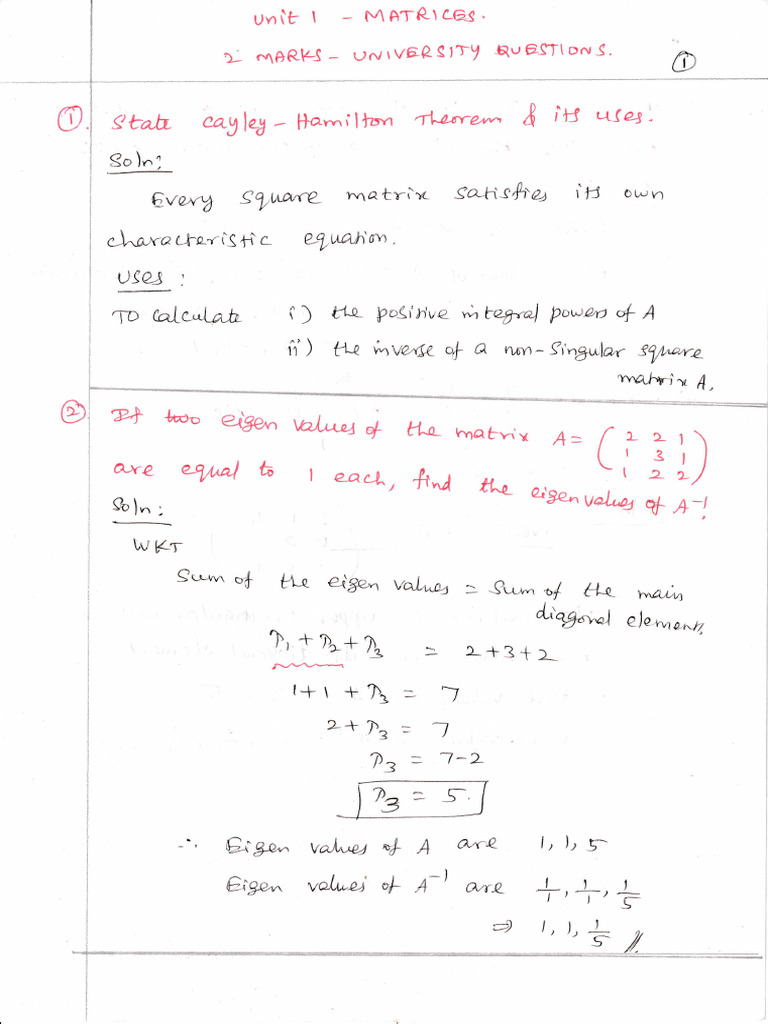 Unit 1 - MATRICES.
2 MARKS - UNIVERSITY QUESTIONS.
①
①. State Cayley-Hamilton Theorem & its uses.
Soln:
Every square matrix satisfies its own
characteristic equation.
Uses:
TO Calculate i) the positive integral powers of A
ii) the inverse of a non-singular square
matrix A.
② If two eigen values of the matrix A = (2 2 1
1 3 1
1 2 2)
are equal to 1 each, find the eigen values of A⁻¹.
Soln:
WKT
Sum of the eigen values = Sum of the main
diagonal elements.
λ₁ + λ₂ + λ₃ = 2+3+2
1+1+λ₃ = 7
2+λ₃ = 7
λ₃ = 7-2
λ₃ = 5.
∴ Eigen values of A are 1, 1, 5
Eigen values of A⁻¹ are 1/1, 1/1, 1/5
⇒ 1, 1, 1/5 //.